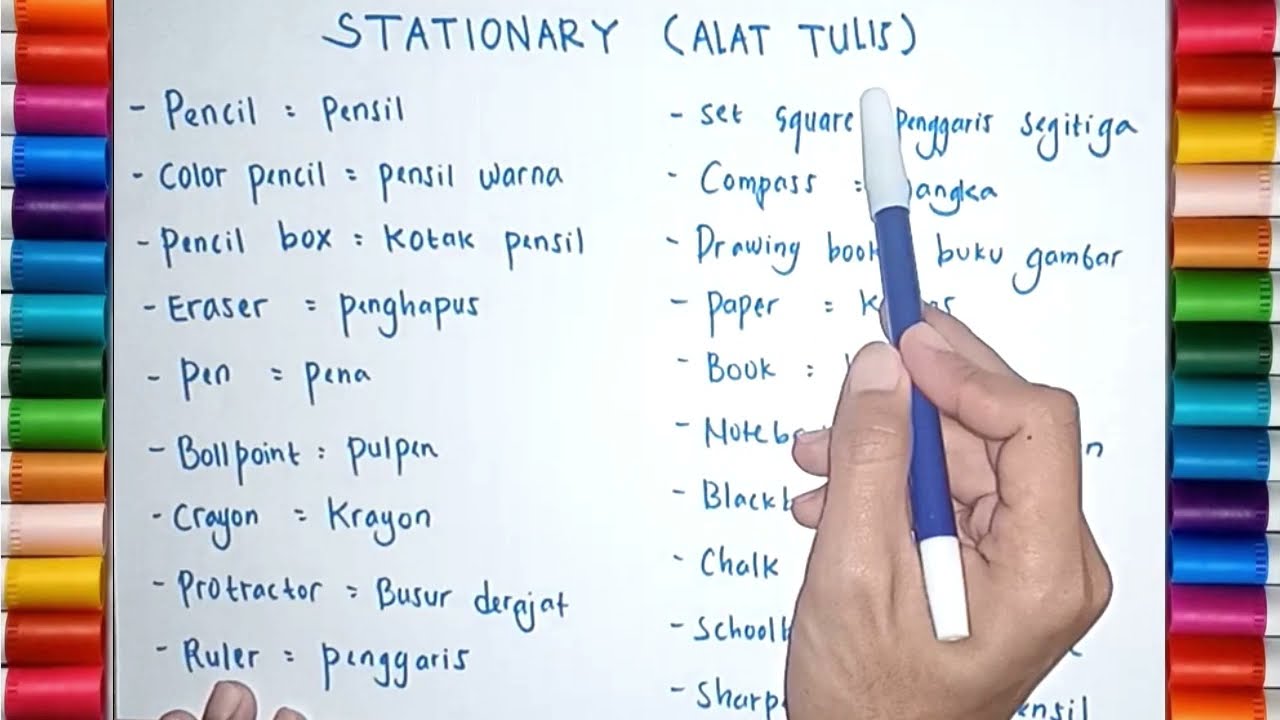 STATIONARY (ALAT TULIS)
- Pencil = pensil
- Color pencil = pensil warna
- Pencil box = Kotak pensil
- Eraser = penghapus
- Pen = pena
- Bollpoint = pulpen
- Crayon = Krayon
- Protractor = Busur derajat
- Ruler = penggaris
- Set square penggaris segitiga
- Compass =
- Drawing book buku gambar
- Paper =
- Book =
- Chalk